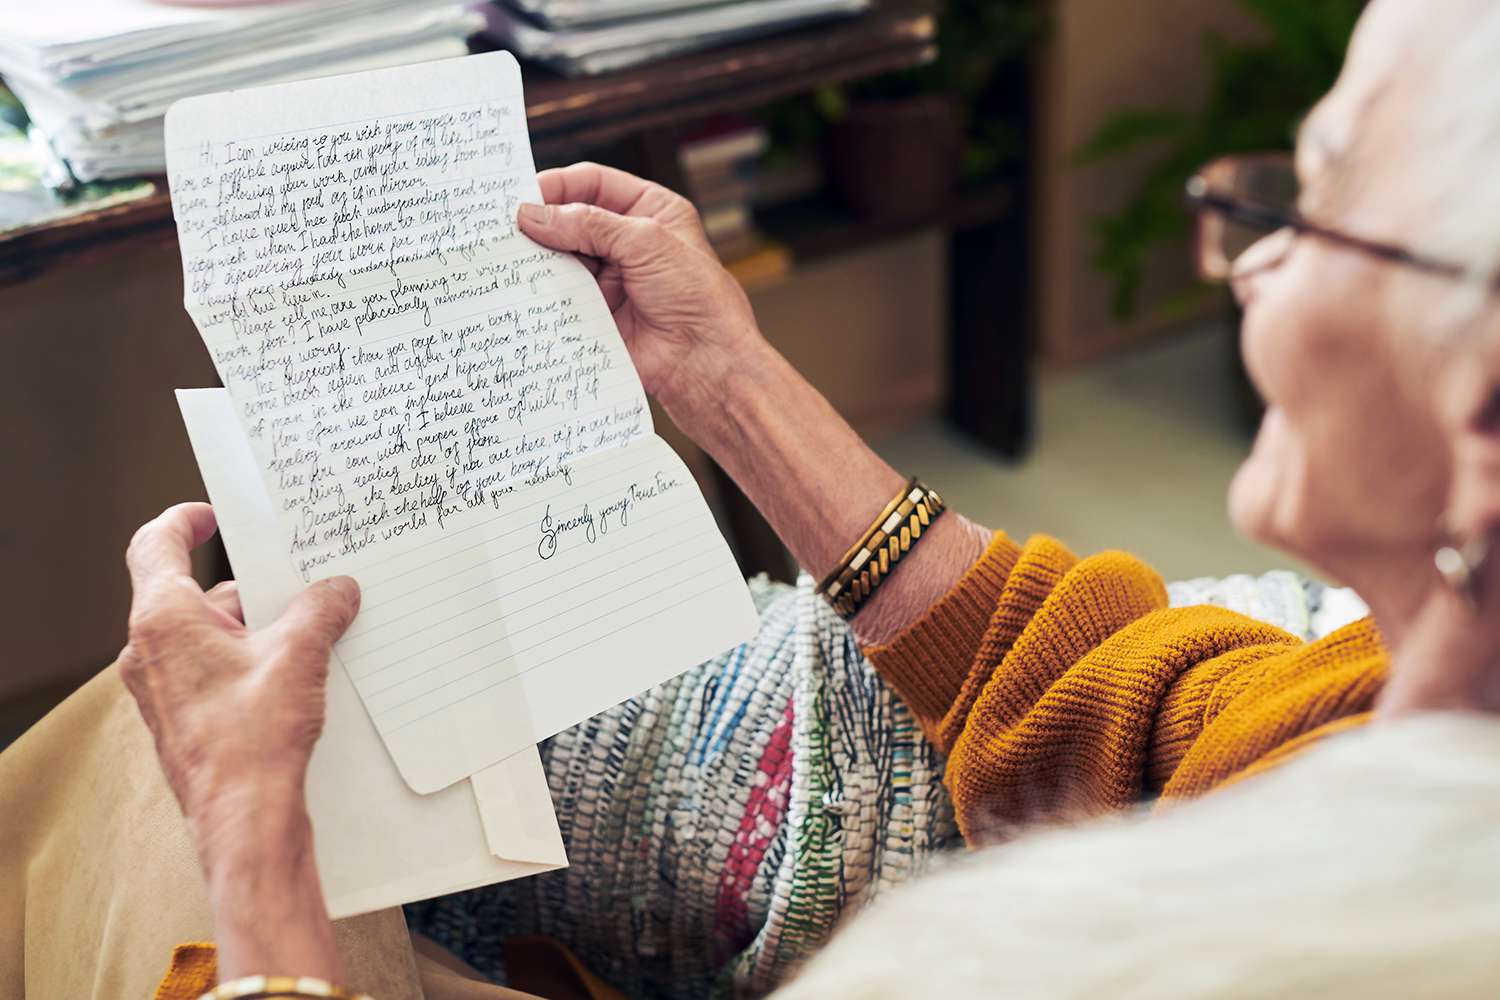 Hi, I am writing to you with great respect and hope
for a possible answer. For ten years of my life, I have
been following your work, and your ideas from books
are reflected in my soul as if in mirror.
I have never met such understanding and recipro
city with whom I had the honor to communicate, for
by discovering your work for myself I
have towards understanding myself and
world we live in.
Please tell me, are you planning to write another
book soon? I have practically memorized all your
previous works.
The questions that you pose in your books make me
come back again and again to reflect on the place
of man in the culture and history of his time.
How often we can influence the appearance of the
reality around us? I believe that you and people
like you can, with proper effort of will, as if
reality out of stone.
Because the reality is not out there, it's in our heads
And only with the help of your books you do change
your whole world for all your readers
Sincerly yours, True Fan.